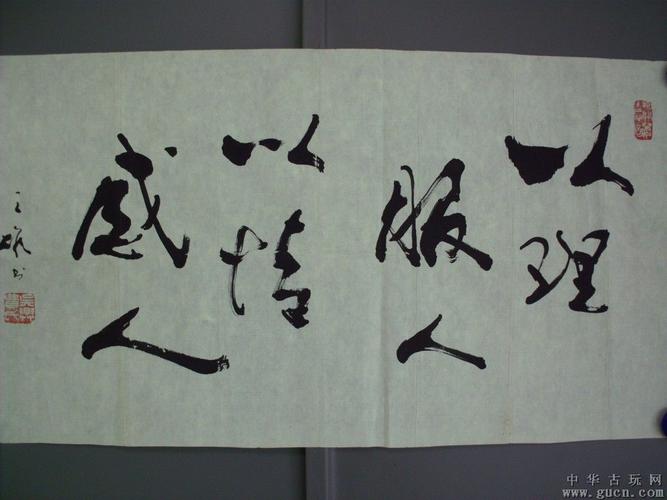 以理
服人
以情
感人
中华古玩网
www.gucn.com